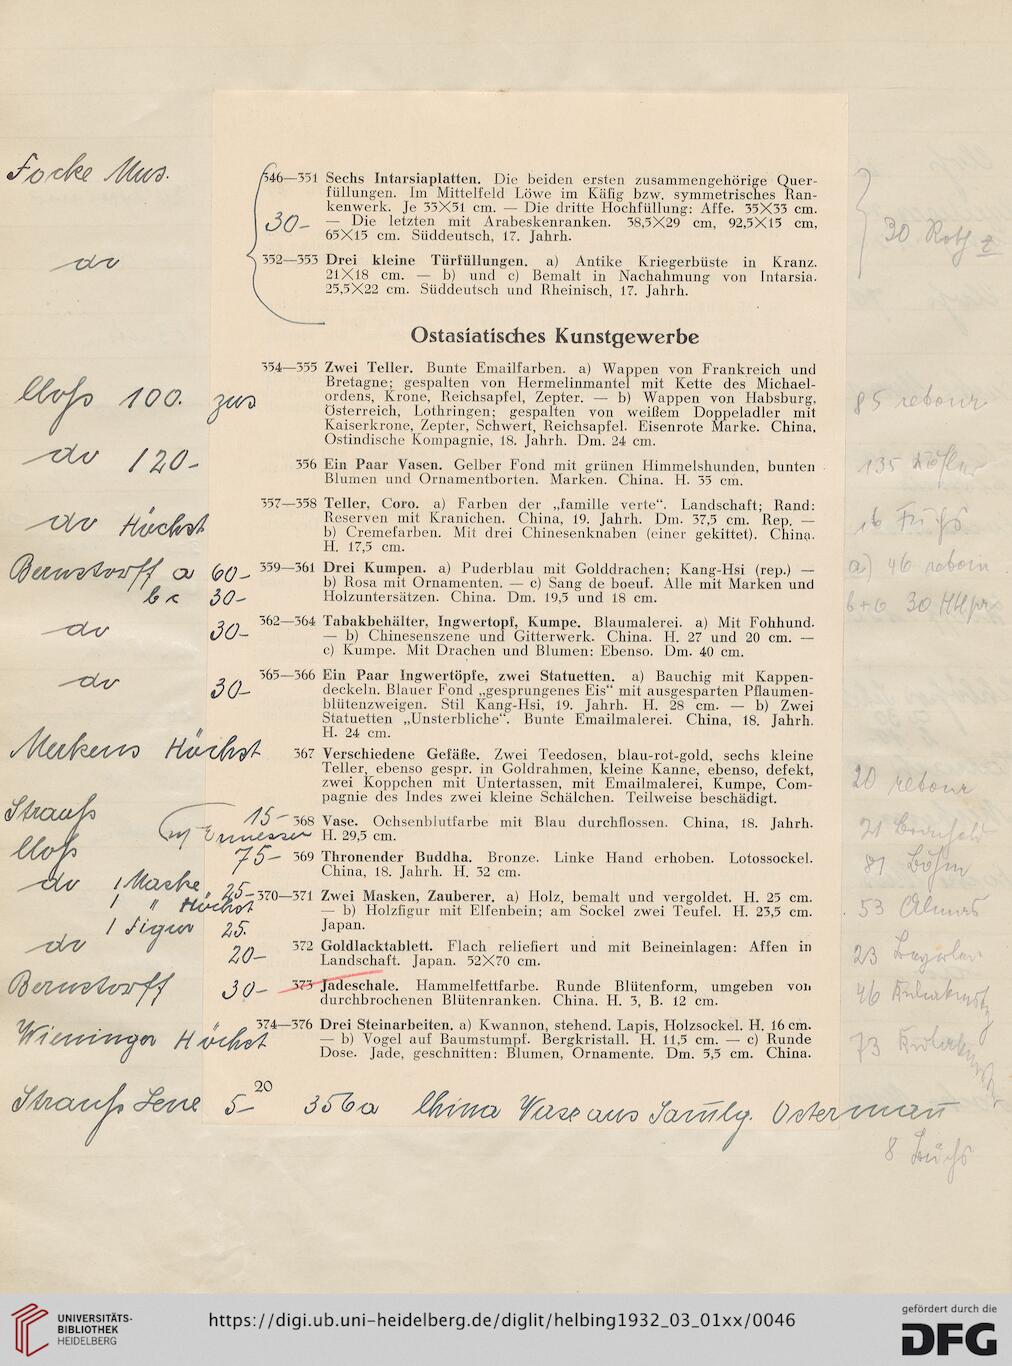 Focke Mus.
546—551 Sechs Intarsiaplatten. Die beiden ersten zusammengehörige Quer-
füllungen. Im Mittelfeld Löwe im Käfig bzw. symmetrisches Ran-
kenwerk. Je 33×51 cm. — Die dritte Hochfüllung: Affe. 35×33 cm.
30- — Die letzten mit Arabeskenranken. 38,5×29 cm, 92,5×15 cm,
65×15 cm. Süddeutsch, 17. Jahrh.
30
do 352—353 Drei kleine Türfüllungen. a) Antike Kriegerbüste in Kranz.
21×18 cm. — b) und c) Bemalt in Nachahmung von Intarsia.
25,5×22 cm. Süddeutsch und Rheinisch, 17. Jahrh.
Ostasiatisches Kunstgewerbe
354—355 Zwei Teller. Bunte Emailfarben. a) Wappen von Frankreich und
Bretagne; gespalten von Hermelinmantel mit Kette des Michael-
ordens, Krone, Reichsapfel, Zepter. — b) Wappen von Habsburg,
100. zus Österreich, Lothringen; gespalten von weißem Doppeladler mit
Kaiserkrone, Zepter, Schwert, Reichsapfel. Eisenrote Marke. China,
Ostindische Kompagnie, 18. Jahrh. Dm. 24 cm.
85 retour
do 120- 356 Ein Paar Vasen. Gelber Fond mit grünen Himmelshunden, bunten
Blumen und Ornamentborten. Marken. China. H. 35 cm.
135
357—358 Teller, Coro. a) Farben der „famille verte“. Landschaft; Rand:
do Höchst Reserven mit Kranichen. China, 19. Jahrh. Dm. 37,5 cm. Rep. —
b) Cremefarben. Mit drei Chinesenknaben (einer gekittet). China.
H. 17,5 cm.
16 Fuchs
Bernstorff a 60- 359—361 Drei Kumpen. a) Puderblau mit Golddrachen; Kang-Hsi (rep.) —
b) Rosa mit Ornamenten. — c) Sang de boeuf. Alle mit Marken und
b c 30- Holzuntersätzen. China. Dm. 19,5 und 18 cm.
a) 46
b+c 30
362—364 Tabakbehälter, Ingwertopf, Kumpe. Blaumalerei. a) Mit Fohhund.
do 30- — b) Chinesenszene und Gitterwerk. China. H. 27 und 20 cm. —
c) Kumpe. Mit Drachen und Blumen: Ebenso. Dm. 40 cm.
365—366 Ein Paar Ingwertöpfe, zwei Statuetten. a) Bauchig mit Kappen-
do 30- deckeln. Blauer Fond „gesprungenes Eis“ mit ausgesparten Pflaumen-
blütenzweigen. Stil Kang-Hsi, 19. Jahrh. H. 28 cm. — b) Zwei
Statuetten „Unsterbliche“. Bunte Emailmalerei. China, 18. Jahrh.
H. 24 cm.
Merkens Höchst 367 Verschiedene Gefäße. Zwei Teedosen, blau-rot-gold, sechs kleine
Teller, ebenso gespr. in Goldrahmen, kleine Kanne, ebenso, defekt,
zwei Koppchen mit Untertassen, mit Emailmalerei, Kumpe, Com-
pagnie des Indes zwei kleine Schälchen. Teilweise beschädigt.
20 retour
Strauss 15- 368 Vase. Ochsenblutfarbe mit Blau durchflossen. China, 18. Jahrh.
H. 29,5 cm.
21
75- 369 Thronender Buddha. Bronze. Linke Hand erhoben. Lotossockel.
China, 18. Jahrh. H. 32 cm.
81 Böhm
do 1 Maske 25- 370—371 Zwei Masken, Zauberer. a) Holz, bemalt und vergoldet. H. 25 cm.
1 " Höchst — b) Holzfigur mit Elfenbein; am Sockel zwei Teufel. H. 23,5 cm.
1 Figur 25. Japan.
53
do 20- 372 Goldlacktablett. Flach reliefiert und mit Beineinlagen: Affen in
Landschaft. Japan. 52×70 cm.
23
Bernstorff 30- 373 Jadeschale. Hammelfettfarbe. Runde Blütenform, umgeben von
durchbrochenen Blütenranken. China. H. 3, B. 12 cm.
46
374—376 Drei Steinarbeiten. a) Kwannon, stehend. Lapis, Holzsockel. H. 16 cm.
Wieninger Höchst — b) Vogel auf Baumstumpf. Bergkristall. H. 11,5 cm. — c) Runde
Dose. Jade, geschnitten: Blumen, Ornamente. Dm. 5,5 cm. China.
73
20
Strauss Lene 5- 356a China Vase aus Samlg. Ostermann
8 Fuchs
UNIVERSITÄTS-
BIBLIOTHEK
HEIDELBERG
https://digi.ub.uni-heidelberg.de/diglit/helbing1932_03_01xx/0046
gefördert durch die
DFG